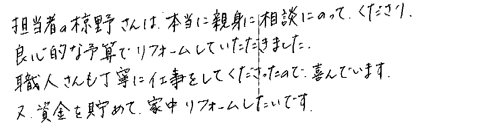 担当者の椋野さんは、本当に親身に相談にのって、くださり、
良心的な予算でリフォームしていただきました。
職人さんも丁寧に仕事をしてくださったので、喜んでいます。
又、資金を貯めて、家中リフォームしたいです。